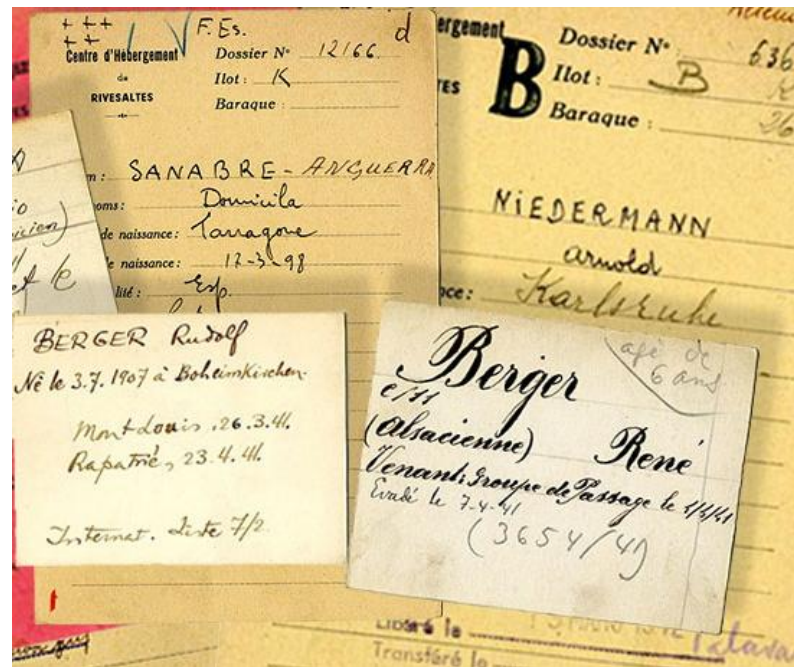 F. Es.
d
Centre d'Hébergement
de
RIVESALTES
Dossier N° 12166
Ilot : K
Baraque :
SANABRE - ANGUERRA
oms : Domicila
de naissance : Tarragone
naissance : 12-3-98
lité : Esp.
ergement
B
Dossier N° 636
Ilot : B
Baraque : 26
NIEDERMANN
arnold
Karlsruhe
BERGER Rudolf
Né le 3.7.1907 à Boheimkirchen.
Montlouis, 26.3.41.
Rapatrié, 23.4.41.
Internat. Liste 7/2
agé de
6 ans
Berger
(alsacienne) René
Venant: Groupe de Passage le
Evadé le 7-4-41
(3654/41)
Libéré le
Transféré le